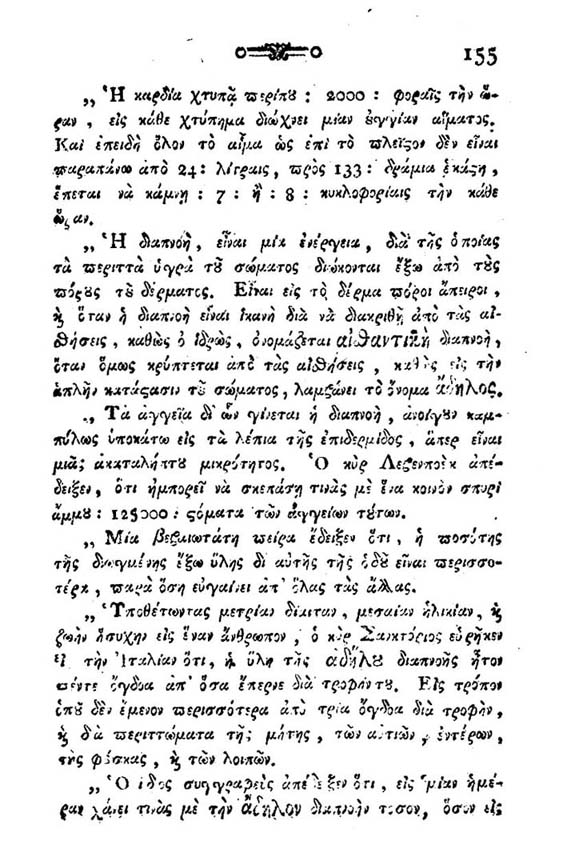 155
„ Ἡ καρδία χτυπᾷ περίπου : 2000 : φοραῖς τὴν ὥ-
ραν , εἰς κάθε χτύπημα διώχνει μίαν οὐγγίαν αἵματος.
Καὶ ἐπειδὴ ὅλον τὸ αἷμα ὡς ἐπὶ τὸ πλεῖστον δὲν εἶναι
παραπάνω ἀπὸ 24 : λίτραις , πρὸς 133 : δράμια ἑκάστη ,
ἕπεται νὰ κάμνῃ : 7 : ἢ : 8 : κυκλοφορίαις τὴν κάθε
ὥραν.
„ Ἡ διαπνοὴ , εἶναι μία ἐνέργεια , διὰ τῆς ὁποίας
τὰ περιττὰ ὑγρὰ τοῦ σώματος διώκονται ἔξω ἀπὸ τοὺς
πόρους τοῦ δέρματος. Εἶναι εἰς τὸ δέρμα πόροι ἄπειροι ,
ϗ ὅταν ἡ διαπνοὴ εἶναι ἱκανὴ διὰ νὰ διακριθῇ ἀπὸ τὰς αἰ-
σθήσεις , καθὼς ὁ ἱδρὼς , ὀνομάζεται αἰσθαντικὴ διαπνοὴ ,
ὅταν ὅμως κρύπτεται ἀπὸ τὰς αἰσθήσεις , καθὼς εἰς τὴν
ἁπλῆν κατάστασιν τοῦ σώματος , λαμβάνει τὸ ὄνομα ἄδηλος.
„ Τὰ ἀγγεῖα δι' ὧν γίνεται ἡ διαπνοὴ , ἀνοίγουν καμ-
πύλως ὑποκάτω εἰς τὰ λέπια τῆς ἐπιδερμίδος , ἅπερ εἶναι
μιᾶς ἀκαταλήπτου μικρότητος. Ὁ κὺρ Λεβενποὲκ ἀπέ-
δειξεν , ὅτι ἠμπορεῖ νὰ σκεπάσῃ τινὰς μὲ ἕνα κοινὸν σπυρὶ
ἄμμου : 125000 : στόματα τῶν ἀγγείων τούτων.
„ Μία βεβαιωτάτη πεῖρα ἔδειξεν ὅτι , ἡ ποσότης
τῆς διωγμένης ἔξω ὕλης δι' αὐτῆς τῆς ὁδοῦ εἶναι περισσο-
τέρα , παρὰ ὅση εὐγαίνει ἀπ' ὅλας τὰς ἄλλας.
„ Ὑποθέτωντας μετρίαν δίαιταν , μεσαίαν ἡλικίαν , ϗ
ζωὴν ἥσυχην εἰς ἕναν ἄνθρωπον , ὁ κὺρ Σανκτόριος εὑρῆκεν
εἰς τὴν Ἰταλίαν ὅτι , ἡ ὕλη τῆς ἀδήλου διαπνοῆς ἦτον
πέντε ὄγδοα ἀπ' ὅσα ἔπερνε διὰ τροφήν του. Εἰς τρόπον
ὁποῦ δὲν ἔμενον περισσότερα ἀπὸ τρία ὄγδοα διὰ τροφὴν ,
ϗ διὰ περιττώματα τῆς μύτης , τῶν αὐτιῶν , ἐντέρων ,
τῆς φούσκας , ϗ τῶν λοιπῶν.
„ Ὁ ἴδιος συγγραφεὺς ἀπέδειξεν ὅτι , εἰς μίαν ἡμέ-
ραν χάνει τινὰς μὲ τὴν ἄδηλον διαπνοὴν τόσον , ὅσον εἰς